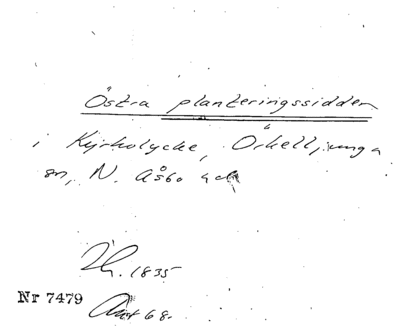 Östra planteringssidden
i Kyrkolycke, Örkelljunga
sn, N. Åsbo hd
Th. 1835
Nr 7479
Akt 68.